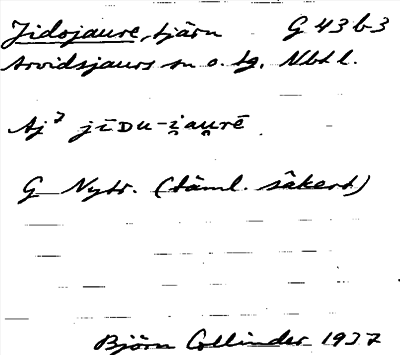 Jidojaure, tjärn G 43 b 3
Arvidsjaurs sn o. tg. Nbt l.
Aj⁷ jīDu-i̯au̯rē
G Nytr. (täml. säkert)
Björn Collinder 1937